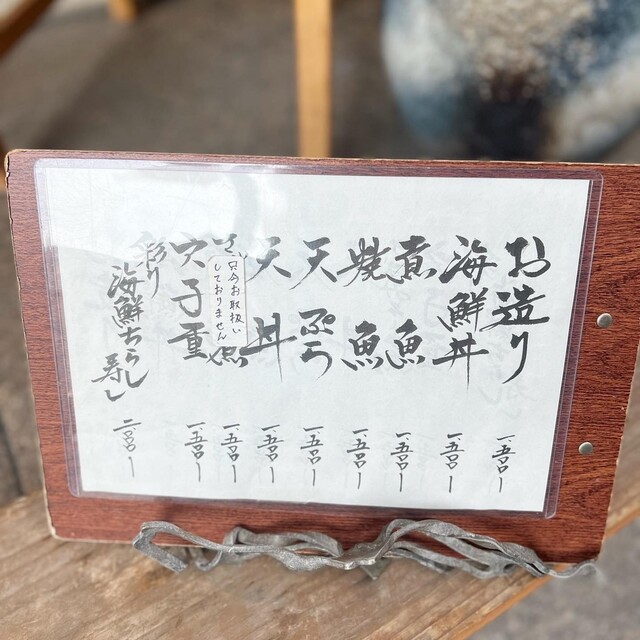 お造り 一五〇〇ー
海鮮丼 一五〇〇ー
煮魚 一五〇〇ー
焼魚 一五〇〇ー
天ぷら 一五〇〇ー
天丼 一五〇〇ー
只今お取扱い
しておりません
一五〇〇ー
穴子重 一五〇〇ー
彩り海鮮ちらし寿し 二〇〇〇ー